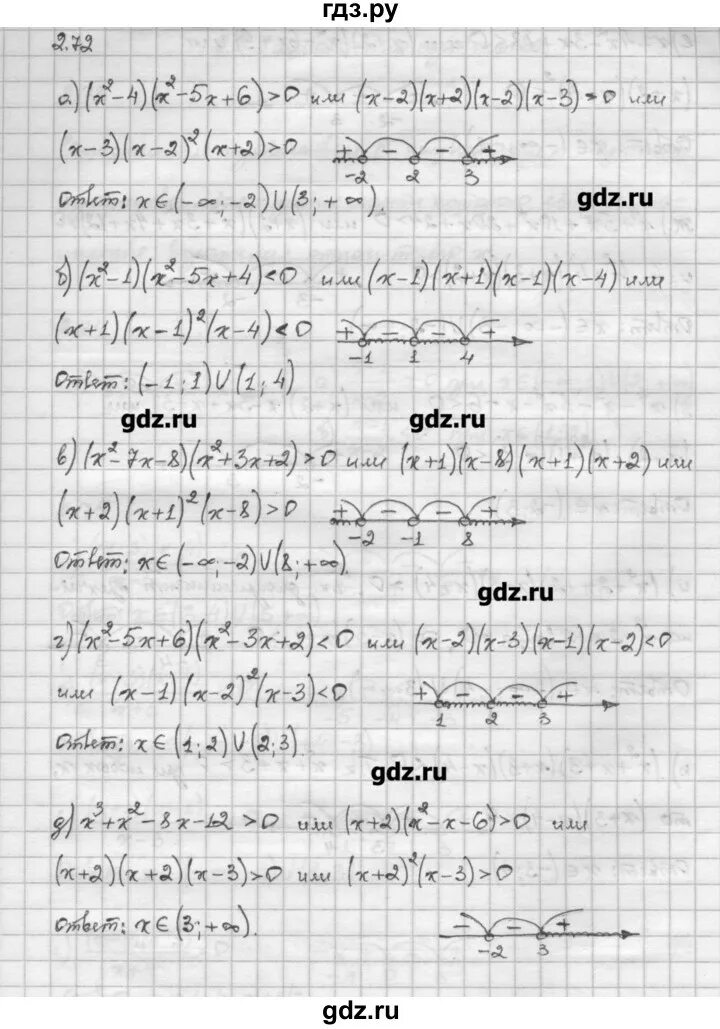 гдз.ру
2.72
а) (x²-4)(x²-5x+6)>0 или (x-2)(x+2)(x-2)(x-3)>0 или
(x-3)(x-2)²(x+2)>0 + - - +
-2 2 3
Ответ: x∈(-∞;-2)∪(3;+∞).
gdz.ru
б) (x²-1)(x²-5x+4)<0 или (x-1)(x+1)(x-1)(x-4) или
(x+1)(x-1)²(x-4)<0 + - - +
-1 1 4
Ответ: (-1;1)∪(1;4)
gdz.ru gdz.ru
в) (x²-7x-8)(x²+3x+2)>0 или (x+1)(x-8)(x+1)(x+2) или
(x+2)(x+1)²(x-8)>0 + - - +
-2 -1 8
Ответ: x∈(-∞;-2)∪(8;+∞).
gdz.ru
г) (x²-5x+6)(x²-3x+2)<0 или (x-2)(x-3)(x-1)(x-2)<0
или (x-1)(x-2)²(x-3)<0 + - - +
1 2 3
Ответ: x∈(1;2)∪(2;3).
gdz.ru
д) x³+x²-8x-12>0 или (x+2)(x²-x-6)>0 или
(x+2)(x+2)(x-3)>0 или (x+2)²(x-3)>0
Ответ: x∈(3;+∞). - - +
-2 3
gdz.ru